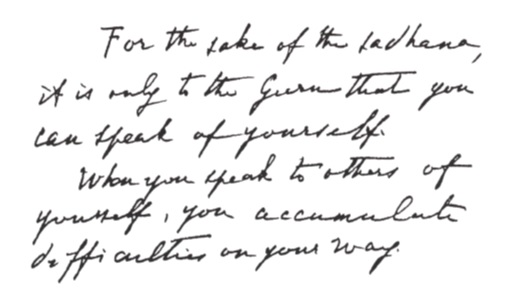 For the sake of the sadhana,
it is only to the Guru that you
can speak of yourself.
When you speak to others of
yourself, you accumulate
difficulties on your way.